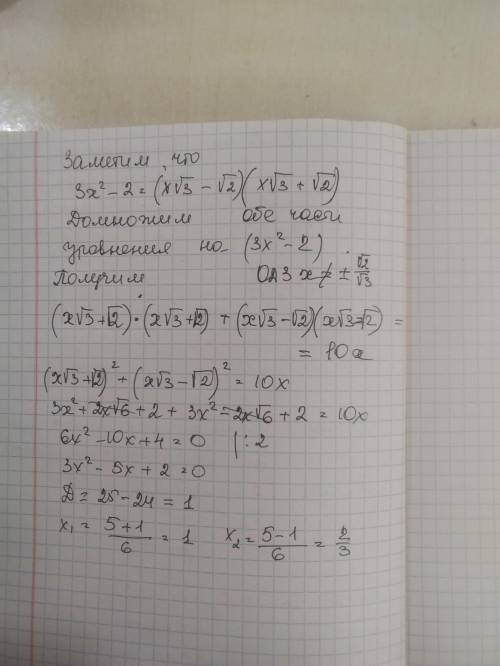 Заметим, что
3x² - 2 = (x√3 - √2)(x√3 + √2)
Домножим обе части
уравнения на (3x² - 2)
Получим ОДЗ x ≠ ± √2/√3
(x√3+√2)·(x√3+√2) + (x√3-√2)(x√3-√2) =
= 10x
(x√3+√2)² + (x√3-√2)² = 10x
3x² + 2x√6 + 2 + 3x² - 2x√6 + 2 = 10x
6x² - 10x + 4 = 0 |:2
3x² - 5x + 2 = 0
D = 25 - 24 = 1
x₁ = (5+1)/6 = 1 x₂ = (5-1)/6 = 2/3